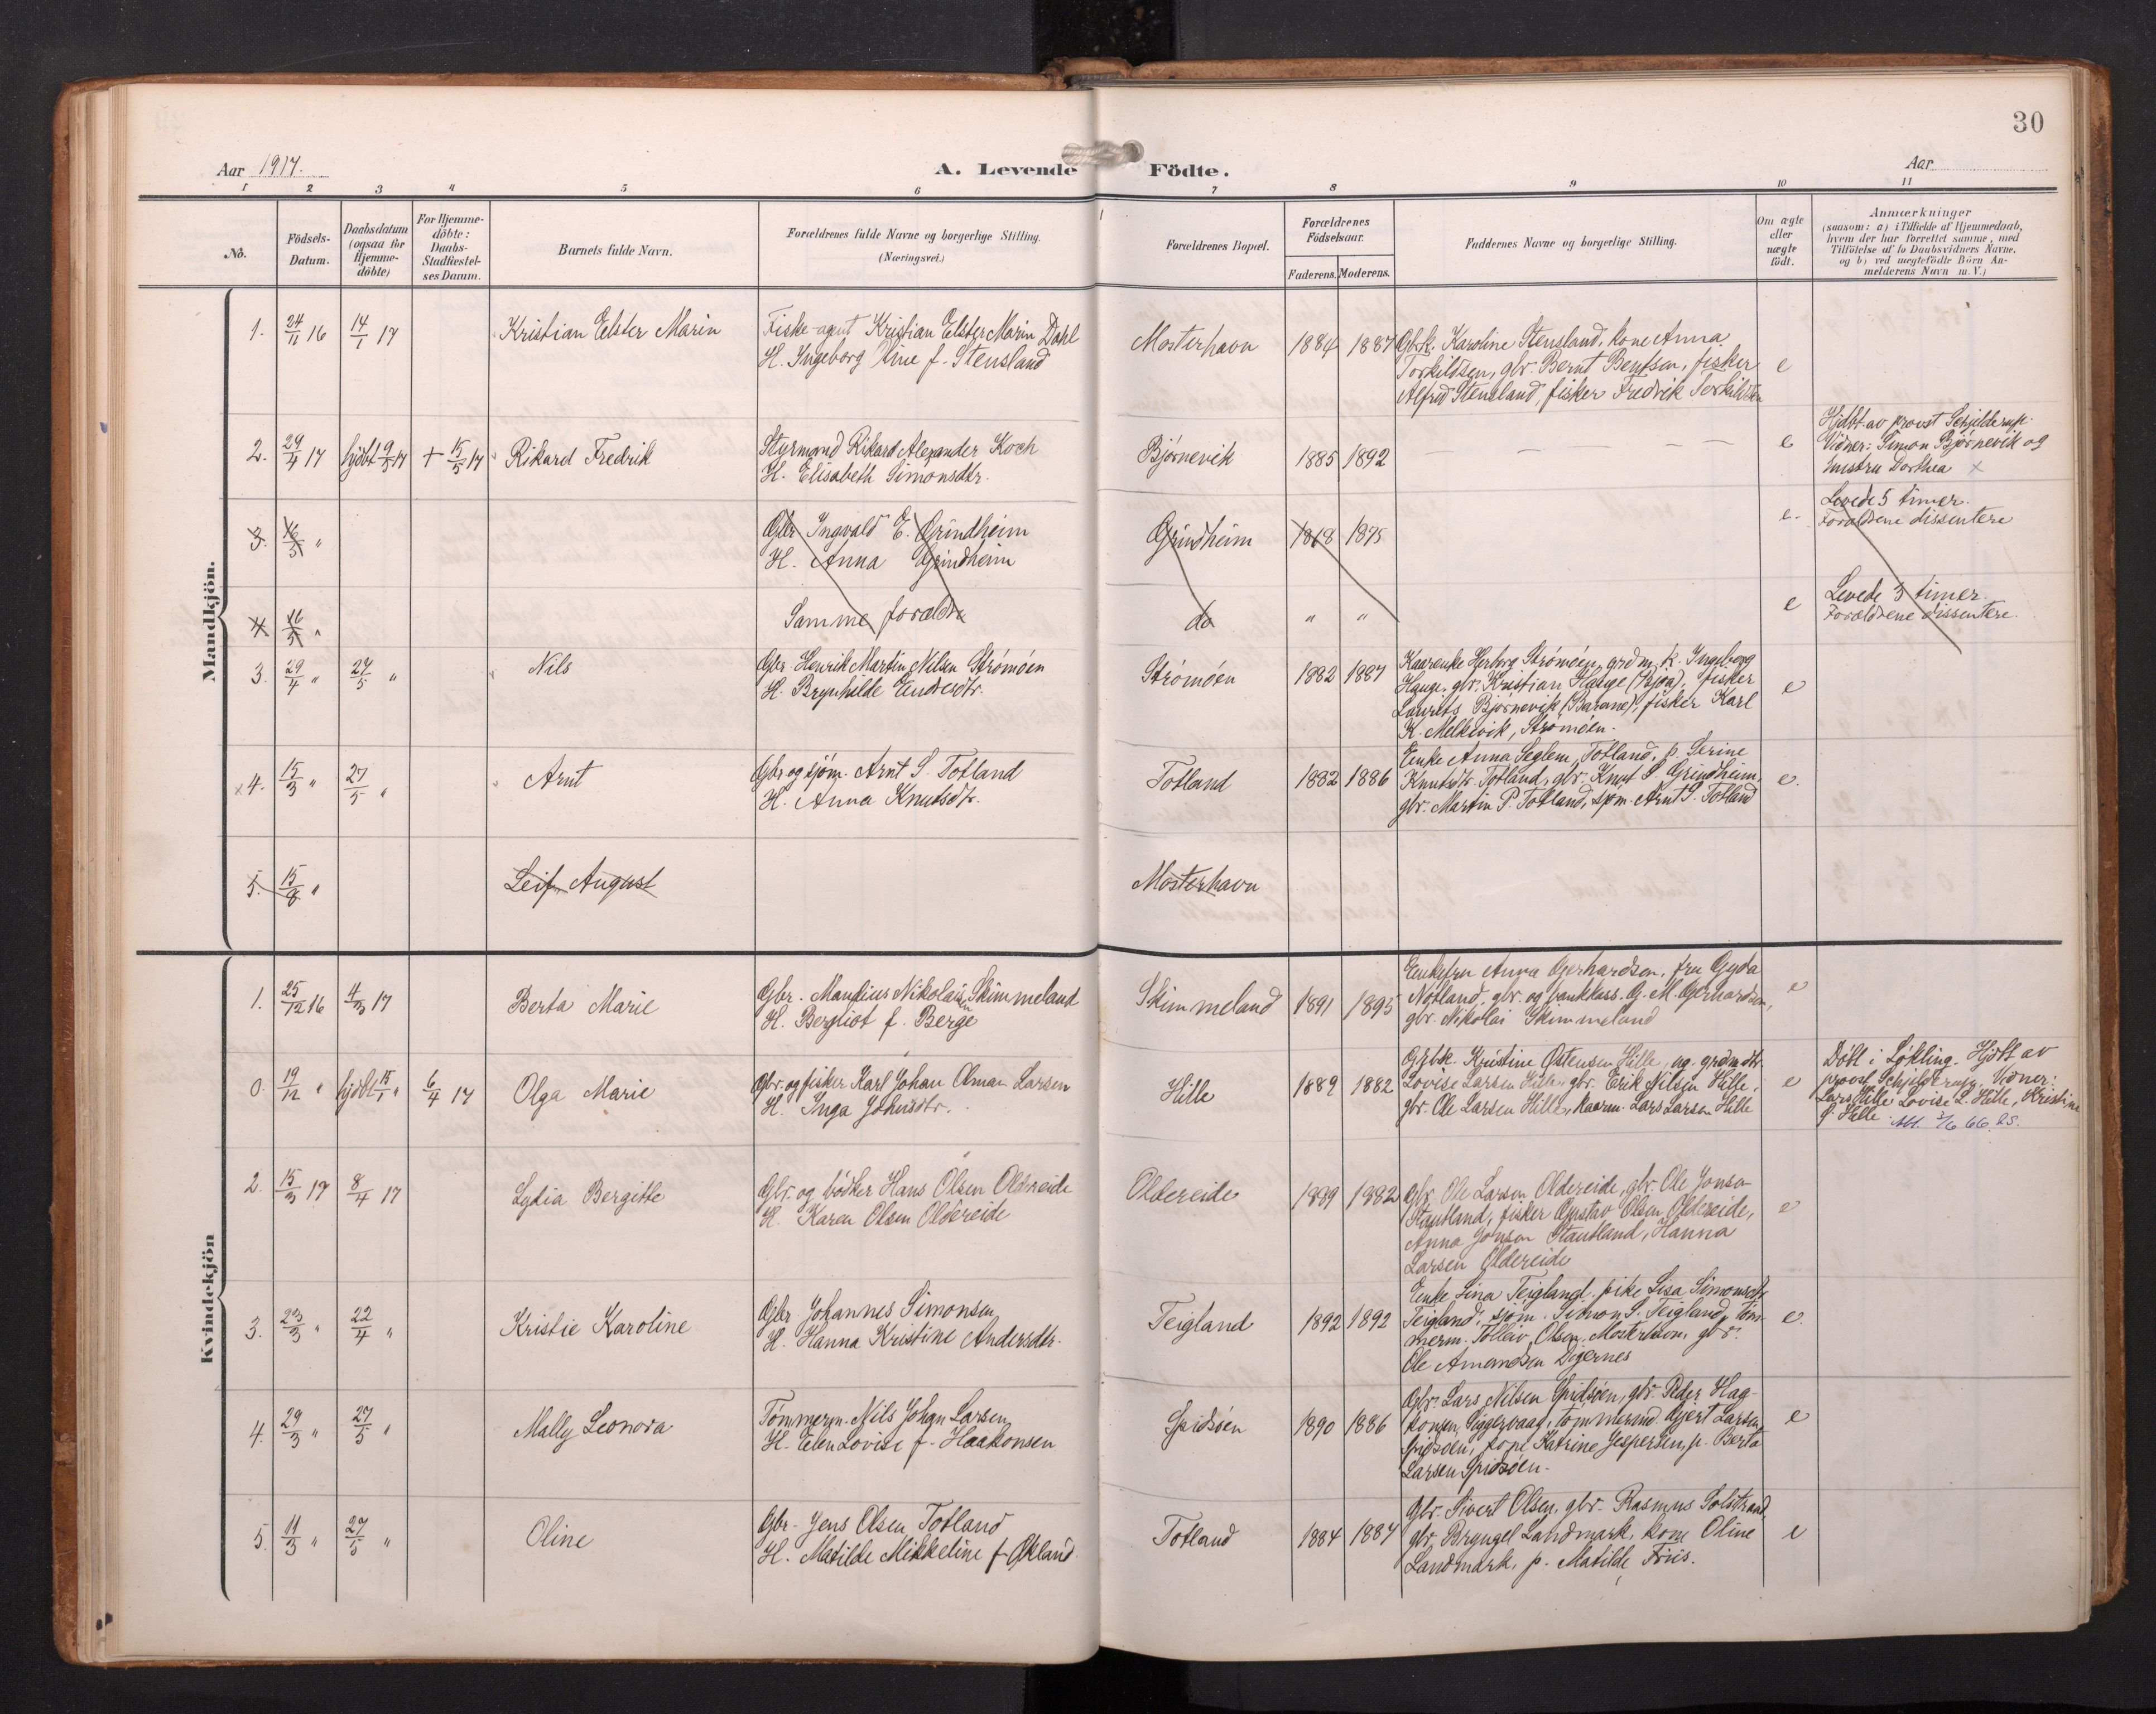 30
Aar 1917.
A. Levende Födte.
Aar
1 2 3 4 5 6 7 8 9 10 11
No.
Födsels-Datum.
Daabsdatum (ogsaa for Hjemme-döbte)
For Hjemme-döbte: Daabs-Stadfæstel-ses Datum.
Barnets fulde Navn.
Forældrenes fulde Navne og borgerlige Stilling. (Næringsvei.)
Forældrenes Bopæl.
Forældrenes Födselsaar.
Faderens. Moderens.
Faddernes Navne og borgerlige Stilling.
Om ægte eller uægte födt.
Anmærkninger
(saasom: a) i Tilfælde af Hjemmedaab,
hvem der har forrettet samme, med
Tilföielse af to Daabsvidners Navne.
og b) ved uægtefödte Börn An-
melderens Navn m. V.)
Mandkjön.
1. 24/11 16 14/1 17 Kristian Elster Marin
Fiske-agent Kristian Elster Marin Dahl
H. Ingeborg Line f. Stensland
Mosterhavn 1884 1887
Gbrk. Karoline Stensland, kone Anna
Torkildsen, gbr. Bernt Bentsen, fisker
Alfred Stensland, fisker Fredrik Torkildsen
e
2. 29/4 17 hjdbt 9/5 17 + 15/5 17 Rikard Fredrik
Styrmand Rikard Alexander Koch
H. Elisabeth Simonsdtr.
Bjørnevik 1885 1892 — — — —
e
Hjdbt av provst Schjelderup.
Vidner: Simon Bjørnevik og
hustru Dorthea ×
3. 16/5 "
Gbr Ingvald E. Grindheim
H. Anna Grindheim
Grindheim 1868 1875
e.
Levede 5 timer.
Forældrene dissentere
4 16/5 "
Samme forældre
do " "
e
Levede 3 timer.
Forældrene dissentere.
3. 29/4 " 27/5 " Nils
Gbr. Henrik Martin Nilsen Strømøen
H. Brynhilde Endresdtr.
Strømøen 1882 1887
Kaarenke Herborg Strømøen, grdm. k. Ingeborg
Hauge, gbr. Kristian Hauge (Bjoa), fisker
Laurits Bjørnevik (Barane), fisker Karl
K. Melkevik, Strømøen.
e
×4. 15/3 " 27/5 " Arnt
Gbr og sjøm. Arnt S. Totland
H. Anna Knutsdtr.
Totland 1882 1886
Enke Anna Seglem, Totland, p. Serine
Knutsdtr. Totland, gbr. Knut S. Grindheim,
gbr. Martin P. Totland, sjøm. Arnt S. Totland
e.
5. 15/8 " Leif August Mosterhavn
Kvindekjön
1. 25/12 16 4/3 17 Berta Marie
Gbr. Mandius Nikolaisen Skimmeland
H. Bergliot f. Berge
Skimmeland 1891 1895
Enkefru Anna Gerhardsen, fru Gyda
Notland, gbr. og bankkass. G. M. Gerhardsen,
gbr. Nikolai Skimmeland
e
0. 19/12 " hjdbt 15/1 " 6/4 17 Olga Marie
Gbr. og fisker Karl Johan Olman Larsen
H. Inga Johnsdtr.
Hille 1889 1882
Gbk. Kristine Østensen Hille, ug. grdmdtr.
Lovise Larsen Hille, gbr. Erik Nilsen Hille,
gbr. Ole Larsen Hille, kaarm. Lars Larsen Hille
e
Døbt i Løkling. Hjdbt av
provst Schjelderup. Vidner:
Lars Hille Lovise L. Hille, Kristine
Ø. Hille. Att. 2/6 66. LS.
2. 15/3 17 8/4 17 Lydia Bergitte
Gbr. og bødker Hans Olsen Oldereide
H. Karen Olsen Oldereide
Oldereide 1889 1882
Gbr. Ole Larsen Oldereide, gbr. Ole Jonsen
Stautland, fisker Gustav Olsen Oldereide,
Anna Jonsen Stautland, Hanna
Larsen Oldereide
e
3. 23/3 " 22/4 " Kristie Karoline
Gbr Johannes Simonsen
H. Hanna Kristine Andersdtr.
Teigland 1892 1892
Enke Sina Teigland, pike Lisa Simonsdtr
Teigland, sjøm. Simon S. Teigland, tøm-
merm. Tolleiv Olsen, Mosterhavn, gbr.
Ole Amandsen Digernes
e.
4. 29/3 " 27/5 " Mally Leonora
Tømmerm. Nils Johan Larsen
H. Elen Lovise f. Haakonsen
Spidsøen 1890 1886
Gbr. Lars Nilsen Spidsøen, gbr. Peder Haa-
konsen, Siggervaag, tømmermd. Gjert Larsen
Spidsøen, kone Katrine Jespersen, p. Berta
Larsen Spidsøen.
e
5. 11/3 " 27/5 " Oline
Gbr. Jens Olsen Totland
H. Matilde Mikkeline f. Økland
Totland 1884 1884
Gbr. Sivert Olsen, gbr. Rasmus Solstrand,
gbr. Bryngel Landmark, kone Oline
Landmark, p. Matilde Friis.
e